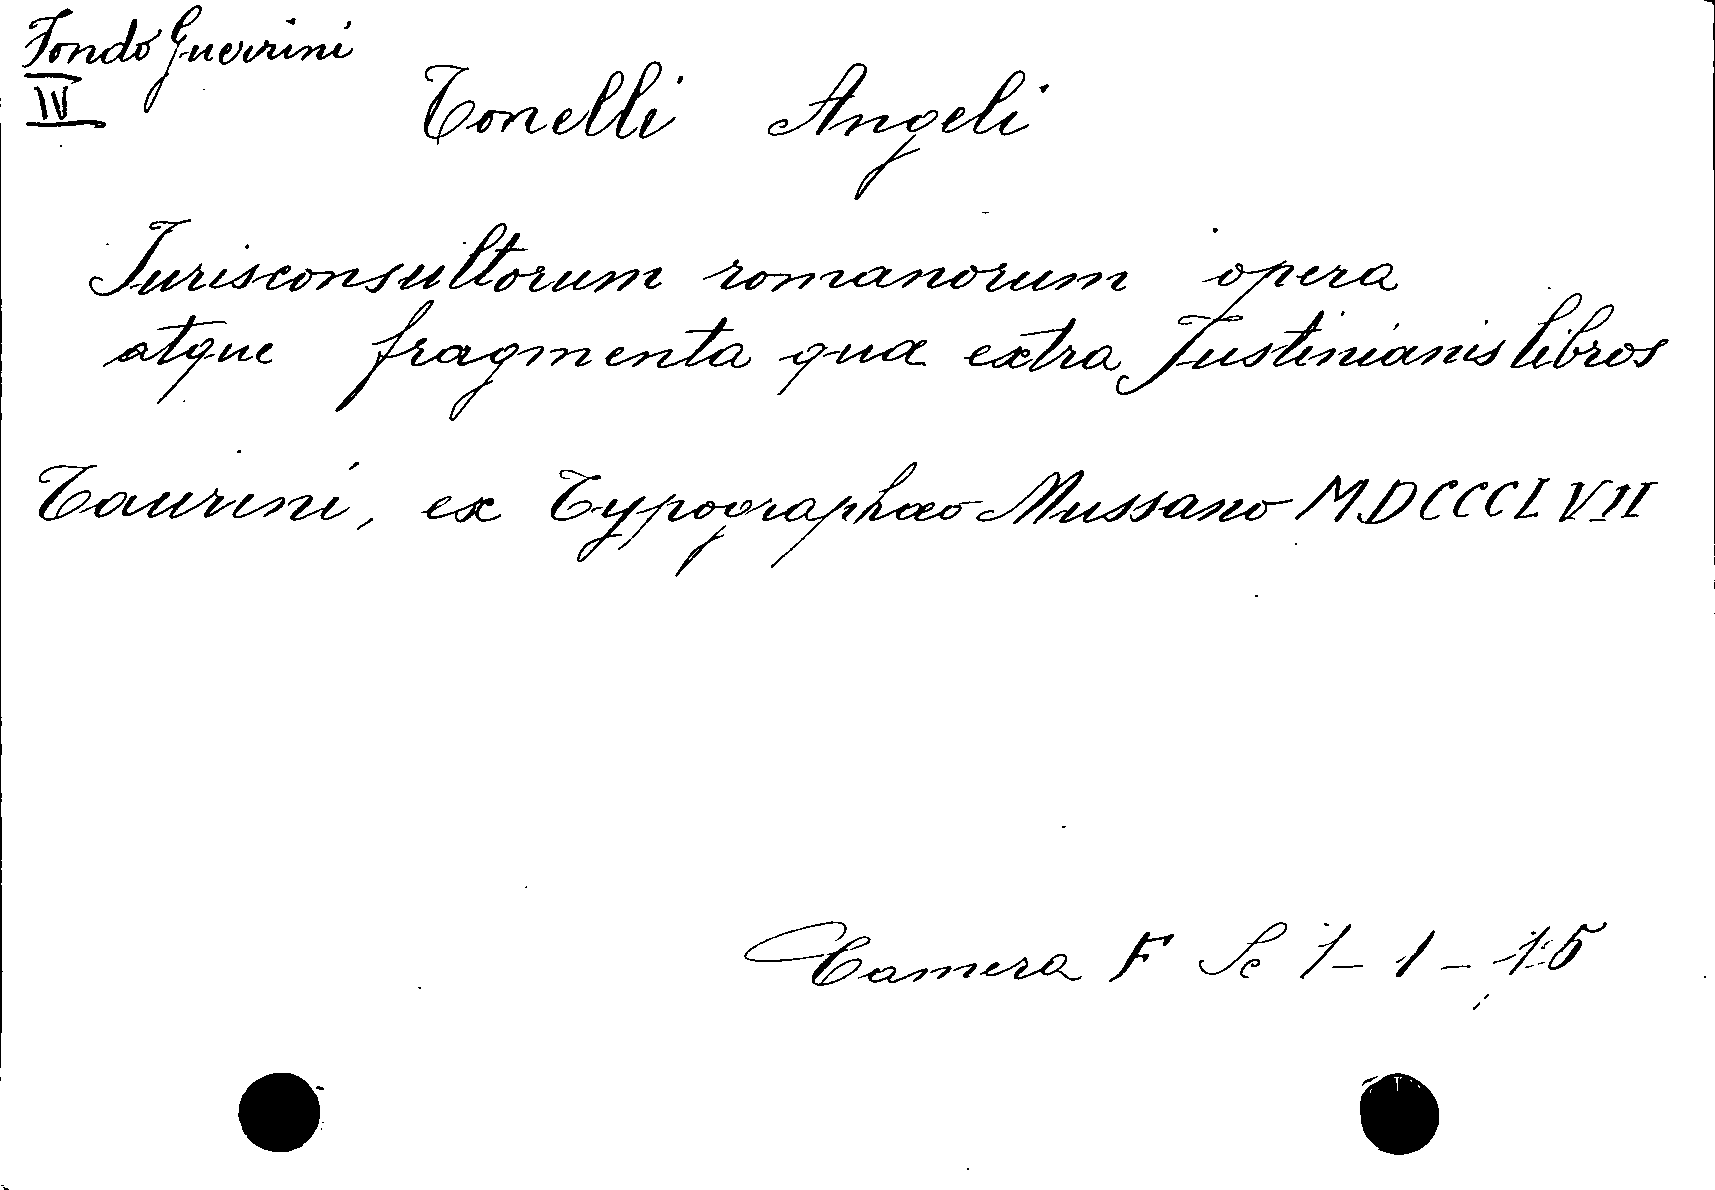 Fondo Guerrini
IV
Tonelli Angeli
Jurisconsultorum romanorum opera
atque fragmenta quæ extra Justinianis libros
Taurini, ex Typographæo Mussano MDCCCLVII
Camera F Sc 1-1-15